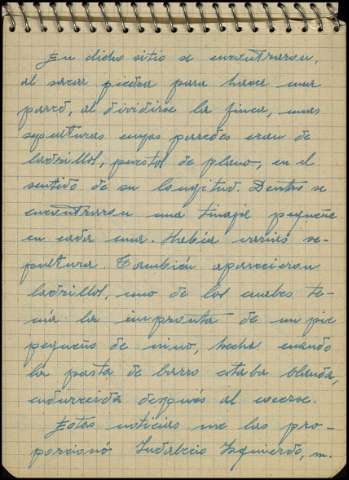 En dicho sitio se encontraron,
al sacar piedra para hacer una
pared, al dividirse la finca, unas
sepulturas cuyas paredes eran de
ladrillos, puestos de plano, en el
sentido de su longitud. Dentro se
encontraron una tinaja pequeña
en cada una. Había varias se-
pultura. También aparecieron
ladrillos, uno de los cuales te-
nía la impronta de un pie
pequeño de niño, hecha cuando
la pasta de barro estaba blanda,
endurecida después al cocerse.
Estas noticias me las pro-
porcionó Indalecio Izquierdo, m.